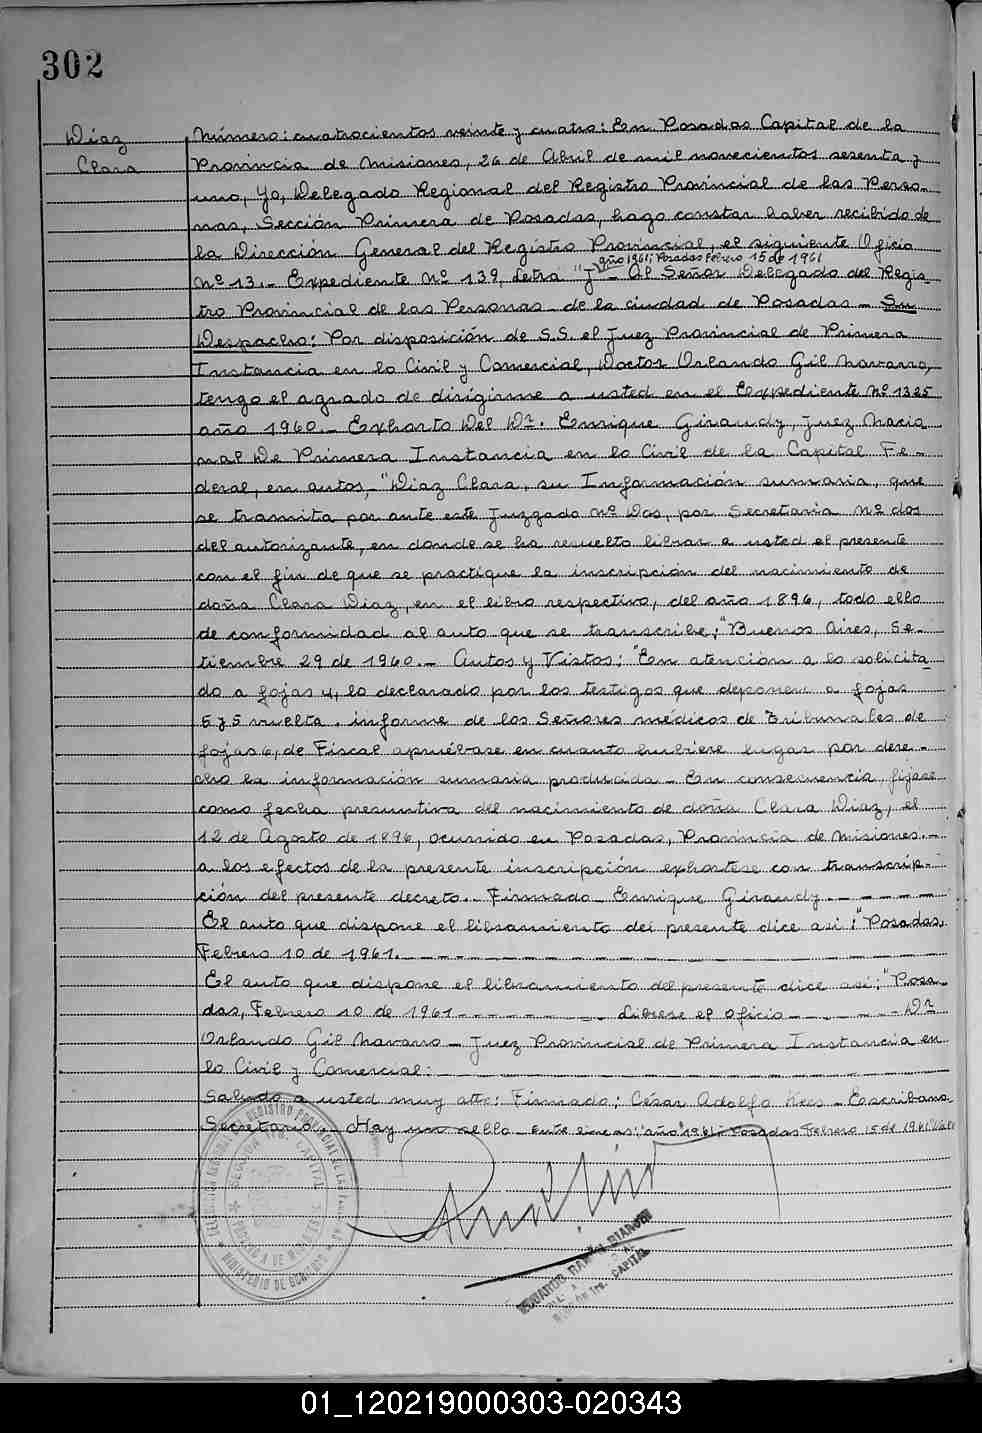 302
Diaz
Clara
Número: cuatrocientos veinte y cuatro: En Posadas Capital de la
Provincia de Misiones, 26 de Abril de mil novecientos sesenta y
uno, Yo, Delegado Regional del Registro Provincial de las Perso-
nas, Sección Primera de Posadas, hago constar haber recibido de
la Dirección General del Registro Provincial, el siguiente Oficio
año 1961; Posadas Febrero 15 de 1961
Nº 13.- Expediente Nº 139, Letra "J" - Al Señor Delegado del Regis-
tro Provincial de las Personas - de la ciudad de Posadas - Su
Despacho: Por disposición de S.S. el Juez Provincial de Primera
Instancia en lo Civil y Comercial, Doctor Orlando Gil Navarro,
tengo el agrado de dirigirme a usted en el Expediente Nº 1325
año 1960.- Exhorto Del Dr. Enrique Giraudy, Juez Nacio
nal De Primera Instancia en lo Civil de la Capital Fe-
deral, en autos,- "Diaz Clara, su Información sumaria, que
se tramita por ante este Juzgado Nº Dos, por Secretaria Nº dos
del autorizante, en donde se ha resuelto librar a usted el presente
con el fin de que se practique la inscripción del nacimiento de
doña Clara Diaz, en el libro respectivo, del año 1896, todo ello
de conformidad al auto que se transcribe; "Buenos Aires, Se-
tiembre 29 de 1960.- Autos y Vistos; "En atención a lo solicita
do a fojas 4, lo declarado por los testigos que deponen a fojas
5 y 5 vuelta, informe de los Señores médicos de Tribunales de
fojas 6, de Fiscal apruébase en cuanto hubiere lugar por dere-
cho la información sumaria producida - En consecuencia, fijase
como fecha presuntiva del nacimiento de doña Clara Diaz, el
12 de Agosto de 1896, ocurrido en Posadas, Provincia de Misiones.-
a los efectos de la presente inscripción exhortese con transcrip-
ción del presente decreto.- Firmado - Enrique Giraudy
El auto que dispone el libramiento del presente dice asi: "Posadas,
Febrero 10 de 1961.
El auto que dispone el libramiento del presente dice asi; "Posa-
das, Febrero 10 de 1961 - Librese el Oficio - Dr
Orlando Gil Navarro - Juez Provincial de Primera Instancia en
lo Civil y Comercial:
Saludo a usted muy atte: Firmado; César Adolfo - Escribano
Secretario - Hay un sello - Entre lineas; "año" 1961; Posadas Febrero 15 de 1961 Vale
REGISTRO PROVINCIAL DE LAS
SECCION 1ra. CAPITAL
MINISTERIO DE GOBIERNO
EDUARDO RAMÓN BIANCHI
1ra. CAPITAL
01_120219000303-020343